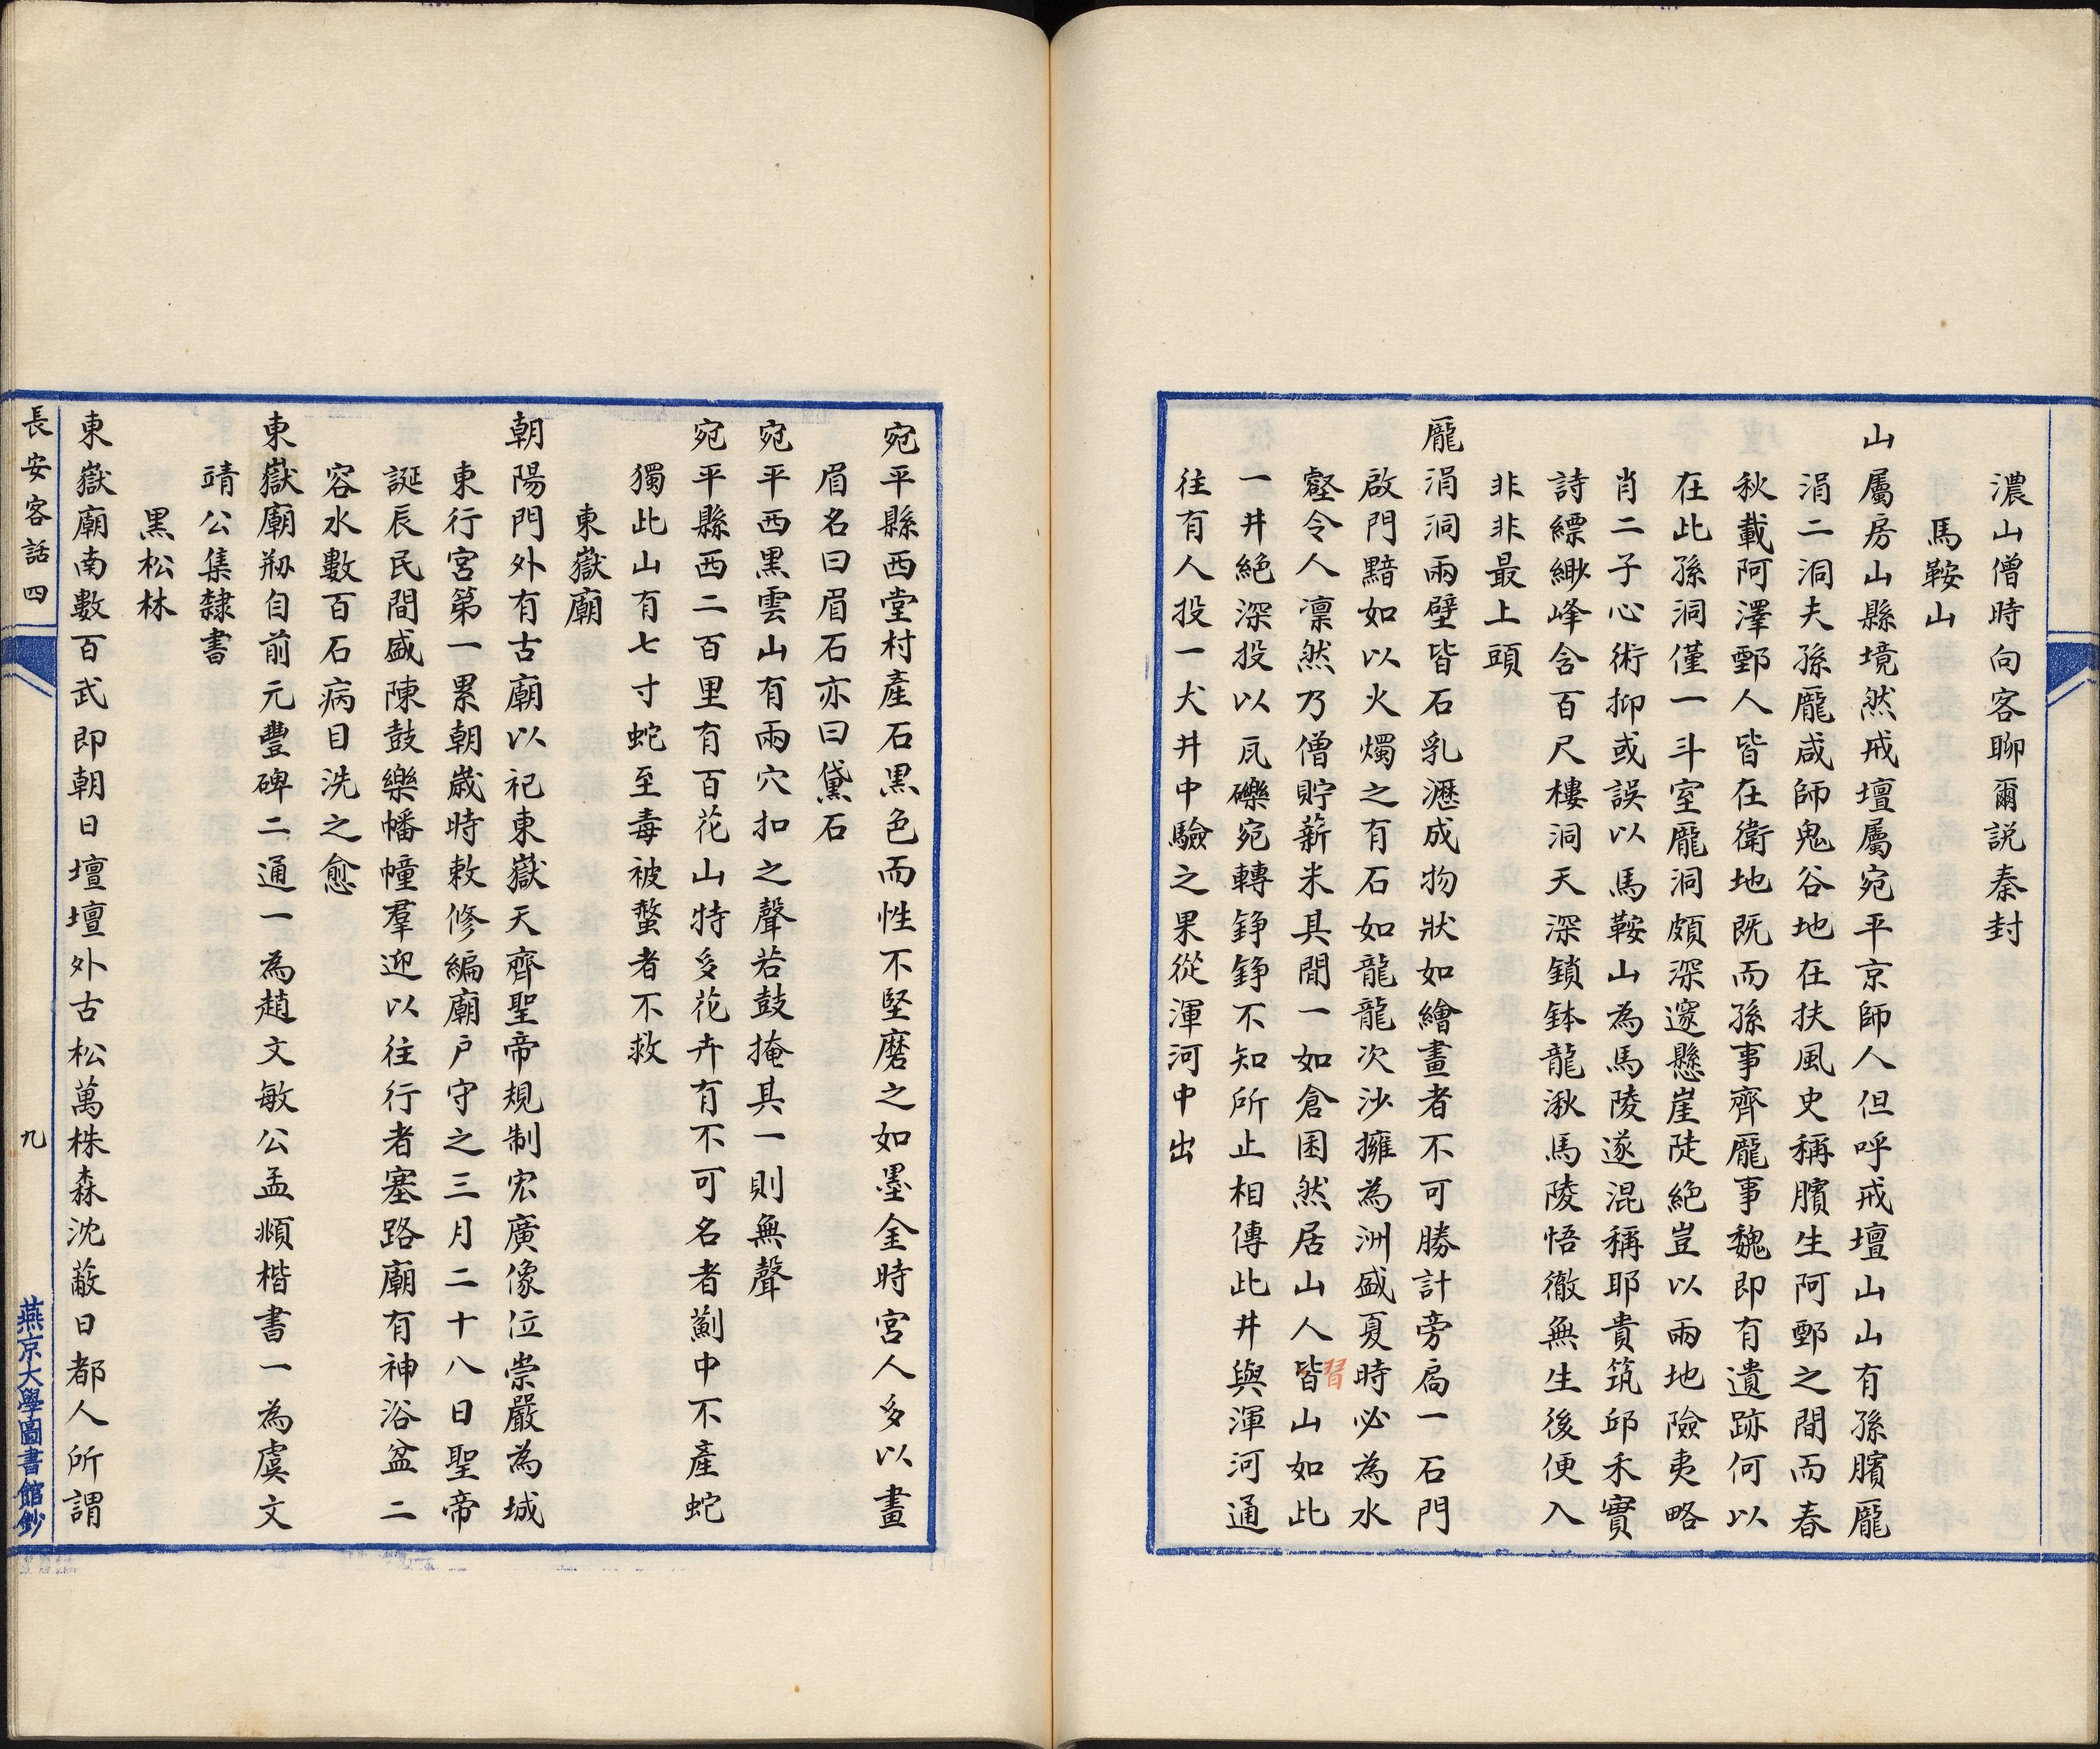 濃山僧時向客聊爾説秦封
馬鞍山
山屬房山縣境然戒壇屬宛平京師人但呼戒壇山山有孫臏龐
涓二洞夫孫龐咸師鬼谷地在扶風史稱臏生阿鄄之間而春
秋載阿澤鄄人皆在衛地既而孫事齊龐事魏即有遺跡何以
在此孫洞僅一斗室龐洞頗深邃懸崖陡絕豈以兩地險夷略
肖二子心術抑或誤以馬鞍山為馬陵遂混稱耶貴筑邱禾實
詩縹緲峰含百尺樓洞天深鎖鉢龍湫馬陵悟徹無生後便入
非非最上頭
龐涓洞兩壁皆石乳瀝成物狀如繪畫者不可勝計旁扃一石門
啟門黯如以火燭之有石如龍龍次沙擁為洲盛夏時必為水
壑令人凛然乃僧貯薪米具間一如倉囷然居山人皆山如此
習
一井絕深投以瓦礫宛轉錚錚不知所止相傳此井與渾河通
往有人投一犬井中驗之果從渾河中出
宛平縣西堂村產石黑色而性不堅磨之如墨金時宮人多以畫
眉名曰眉石亦曰黛石
宛平西黑雲山有兩穴扣之聲若鼓掩其一則無聲
宛平縣西二百里有百花山特多花卉有不可名者薊中不產蛇
獨此山有七寸蛇至毒被螫者不救
東嶽廟
朝陽門外有古廟以祀東嶽天齊聖帝規制宏廣像位崇嚴為城
東行宮第一累朝歲時敕修編廟戶守之三月二十八日聖帝
誕辰民間盛陳鼓樂幡幢羣迎以往行者塞路廟有神浴盆二
容水數百石病目洗之愈
東嶽廟剏自前元豐碑二通一為趙文敏公孟頫楷書一為虞文
靖公集隸書
黑松林
東嶽廟南數百武即朝日壇壇外古松萬株森沈蔽日都人所謂
長安客話四
九
燕京大學圖書館鈔